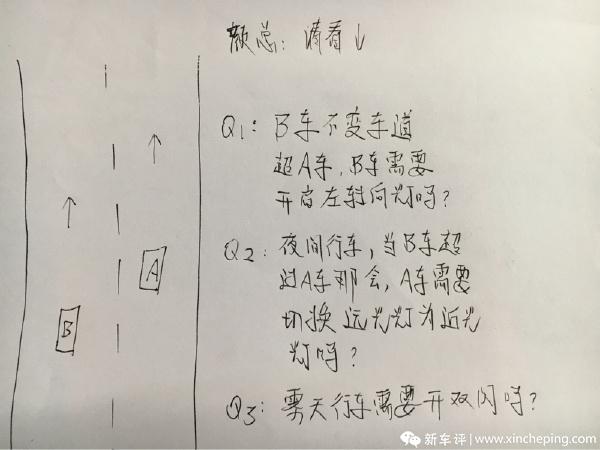 颜总：请看↓
Q1：B车不变车道
超A车，B车需要
开启左转向灯吗？
Q2：夜间行车，当B车超
过A车那会，A车需要
切换远光灯为近光
灯吗？
Q3：雾天行车需要开双闪吗？
A
B
新车评 | www.xincheping.com